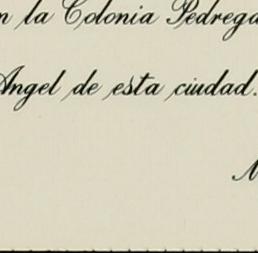 n la Colonia Pedrega
Angel de esta ciudad.
M